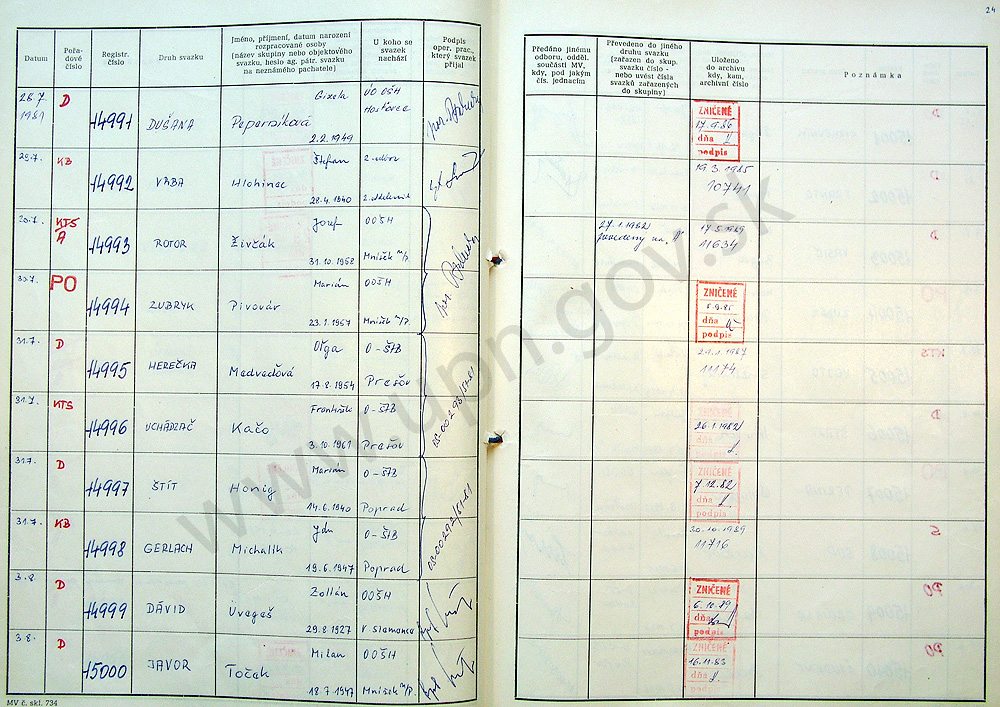 24
Datum
Pořa-
dové
číslo
Registr.
číslo
Druh svazku
Jméno, příjmení, datum narození
rozpracované osoby
[název skupiny nebo objektového
svazku, heslo ag. pátr. svazku
na neznámého pachatele]
U koho se
svazek
nachází
Podpis
oper. prac.,
který svazek
přijal
Předáno jinému
odboru, odděl.
součásti MV,
kdy, pod jakým
čís. jednacím
Převedeno do jiného
druhu svazku
[zařazen do skup.
svazku číslo -
nebo uvést čísla
svazků zařazených
do skupiny]
Uloženo
do archivu
kdy, kam,
archivní číslo
Poznámka
28.7.
1981
D
14991
DUŠANA
Gizela
Peporníková
2.2.1949
ZNIČENÉ
17.9.86
dňa
podpis
29.7.
KB
14992
VRBA
Štefan
Hlohinec
28.4.1940
19.3.1985
10741
KTS
A
14993
ROTOR
Jozef
Živčák
31.10.1958
OOŠH
Mníšek n/P.
27.1.1982
17.5.1989
11634
30.7.
PO
14994
ZUBRYK
Marián
Pivovár
23.1.1957
OOŠH
Mníšek n/P.
ZNIČENÉ
dňa
podpis
31.7.
D
14995
HEREČKA
Oľga
Medveďová
17.8.1954
O-ŠTB
Prešov
11174
31.7.
KTS
14996
UCHÁDZAČ
František
Kačo
3.10.1961
O-ŠTB
Prešov
ZNIČENÉ
26.1.1982
dňa
podpis
31.7.
D
14997
ŠTÍT
Marián
Honig
14.6.1940
O-ŠTB
Poprad
ZNIČENÉ
7.12.82
dňa
podpis
31.7.
KB
14998
GERLACH
Ján
Michalik
19.6.1947
O-ŠTB
Poprad
30.10.1989
11716
3.8.
D
14999
DÁVID
Zoltán
Uvegeš
29.8.1927
OOŠH
ZNIČENÉ
6.10.89
dňa
podpis
3.8.
D
15000
JAVOR
Milan
Točak
18.7.1947
OOŠH
Mníšek n/P.
ZNIČENÉ
16.11.83
dňa
podpis
MV č. skl. 734
www.upn.gov.sk